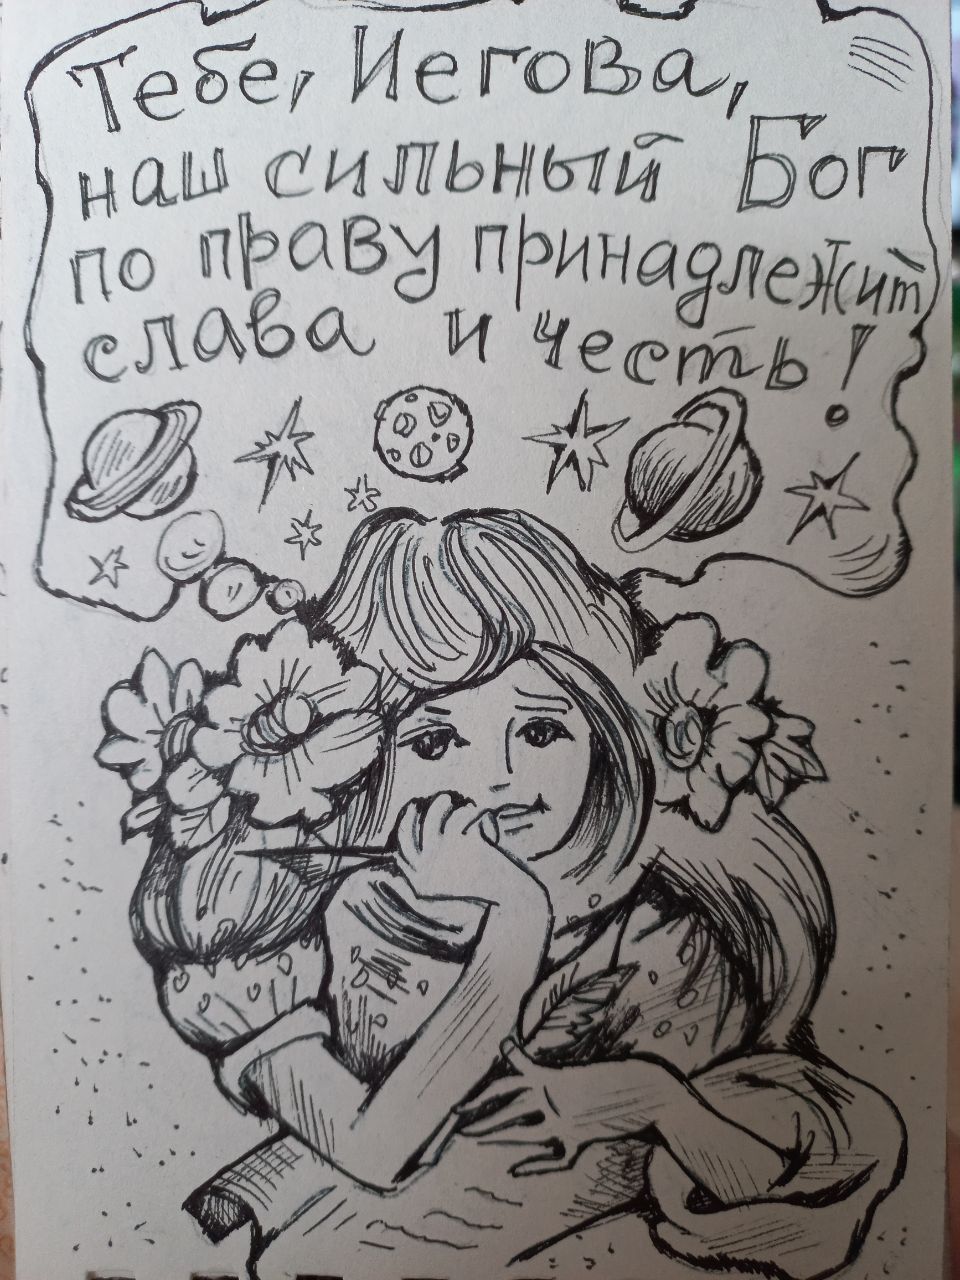 Тебе, Иегова,
наш сильный Бог
по праву принадлежит
слава и честь!